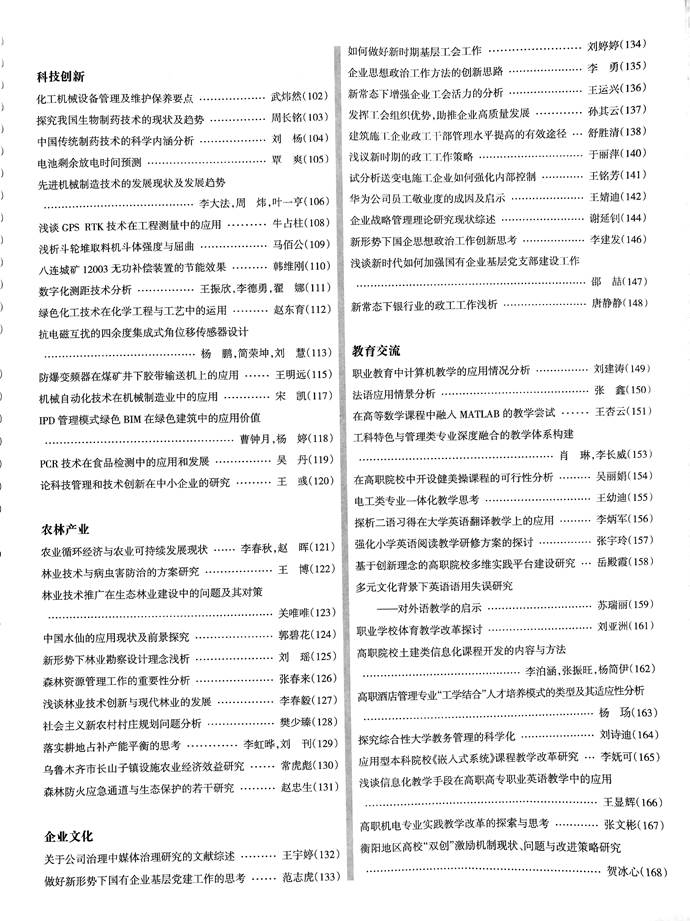 科技创新
化工机械设备管理及维护保养要点 ……………… 武炜然(102)
探究我国生物制药技术的现状及趋势 …………… 周长铭(103)
中国传统制药技术的科学内涵分析 ……………… 刘 杨(104)
电池剩余放电时间预测 …………………………… 覃 爽(105)
先进机械制造技术的发展现状及发展趋势
…………………………………… 李大法,周 炜,叶一亨(106)
浅谈 GPS RTK 技术在工程测量中的应用 ……… 牛占柱(108)
浅析斗轮堆取料机斗体强度与屈曲 ……………… 马佰公(109)
八连城矿 12003 无功补偿装置的节能效果 ……… 韩维刚(110)
数字化测距技术分析 …………… 王振欣,李德勇,翟 娜(111)
绿色化工技术在化学工程与工艺中的运用 ……… 赵东育(112)
抗电磁互扰的四余度集成式角位移传感器设计
…………………………………… 杨 鹏,简荣坤,刘 慧(113)
防爆变频器在煤矿井下胶带输送机上的应用 …… 王明远(115)
机械自动化技术在机械制造业中的应用 ………… 宋 凯(117)
IPD 管理模式绿色 BIM 在绿色建筑中的应用价值
……………………………………………… 曹钟月,杨 婷(118)
PCR 技术在食品检测中的应用和发展 …………… 吴 丹(119)
论科技管理和技术创新在中小企业的研究 ……… 王 彧(120)
农林产业
农业循环经济与农业可持续发展现状 …… 李春秋,赵 晖(121)
林业技术与病虫害防治的方案研究 ……………… 王 博(122)
林业技术推广在生态林业建设中的问题及其对策
……………………………………………………… 关唯唯(123)
中国水仙的应用现状及前景探究 ………………… 郭碧花(124)
新形势下林业勘察设计理念浅析 ………………… 刘 瑶(125)
森林资源管理工作的重要性分析 ………………… 张春来(126)
浅谈林业技术创新与现代林业的发展 …………… 李春毅(127)
社会主义新农村村庄规划问题分析 ……………… 樊少臻(128)
落实耕地占补产能平衡的思考 ………… 李虹晔,刘 刊(129)
乌鲁木齐市长山子镇设施农业经济效益研究 …… 常虎彪(130)
森林防火应急通道与生态保护的若干研究 ……… 赵忠生(131)
企业文化
关于公司治理中媒体治理研究的文献综述 ……… 王宇婷(132)
做好新形势下国有企业基层党建工作的思考 …… 范志虎(133)
如何做好新时期基层工会工作 …………………… 刘婷婷(134)
企业思想政治工作方法的创新思路 ……………… 李 勇(135)
新常态下增强企业工会活力的分析 ……………… 王运兴(136)
发挥工会组织优势,助推企业高质量发展 ……… 孙其云(137)
建筑施工企业政工干部管理水平提高的有效途径 … 舒胜清(138)
浅议新时期的政工工作策略 ……………………… 于丽萍(140)
试分析送变电施工企业如何强化内部控制 ……… 王铭芳(141)
华为公司员工敬业度的成因及启示 ……………… 王婧迪(142)
企业战略管理理论研究现状综述 ………………… 谢延钊(144)
新形势下国企思想政治工作创新思考 …………… 李建发(146)
浅谈新时代如何加强国有企业基层党支部建设工作
……………………………………………………… 邵 喆(147)
新常态下银行业的政工工作浅析 ………………… 唐静静(148)
教育交流
职业教育中计算机教学的应用情况分析 ………… 刘建涛(149)
法语应用情景分析 ………………………………… 张 鑫(150)
在高等数学课程中融入 MATLAB 的教学尝试 …… 王杏云(151)
工科特色与管理类专业深度融合的教学体系构建
……………………………………………… 肖 琳,李长威(153)
在高职院校中开设健美操课程的可行性分析 …… 吴丽娟(154)
电工类专业一体化教学思考 ……………………… 王幼迪(155)
探析二语习得在大学英语翻译教学上的应用 …… 李炳军(156)
强化小学英语阅读教学研修方案的探讨 ………… 张宇玲(157)
基于创新理念的高职院校多维实践平台建设研究 … 岳殿霞(158)
多元文化背景下英语语用失误研究
——对外语教学的启示 ………………………… 苏瑞丽(159)
职业学校体育教学改革探讨 ……………………… 刘亚洲(161)
高职院校土建类信息化课程开发的内容与方法
…………………………………… 李泊涵,张振旺,杨简伊(162)
高职酒店管理专业“工学结合”人才培养模式的类型及其适应性分析
……………………………………………………… 杨 玚(163)
探究综合性大学教务管理的科学化 ……………… 刘诗迪(164)
应用型本科院校《嵌入式系统》课程教学改革研究 … 李妩可(165)
浅谈信息化教学手段在高职高专职业英语教学中的应用
……………………………………………………… 王显辉(166)
高职机电专业实践教学改革的探索与思考 ……… 张文彬(167)
衡阳地区高校“双创”激励机制现状、问题与改进策略研究
……………………………………………………… 贺冰心(168)